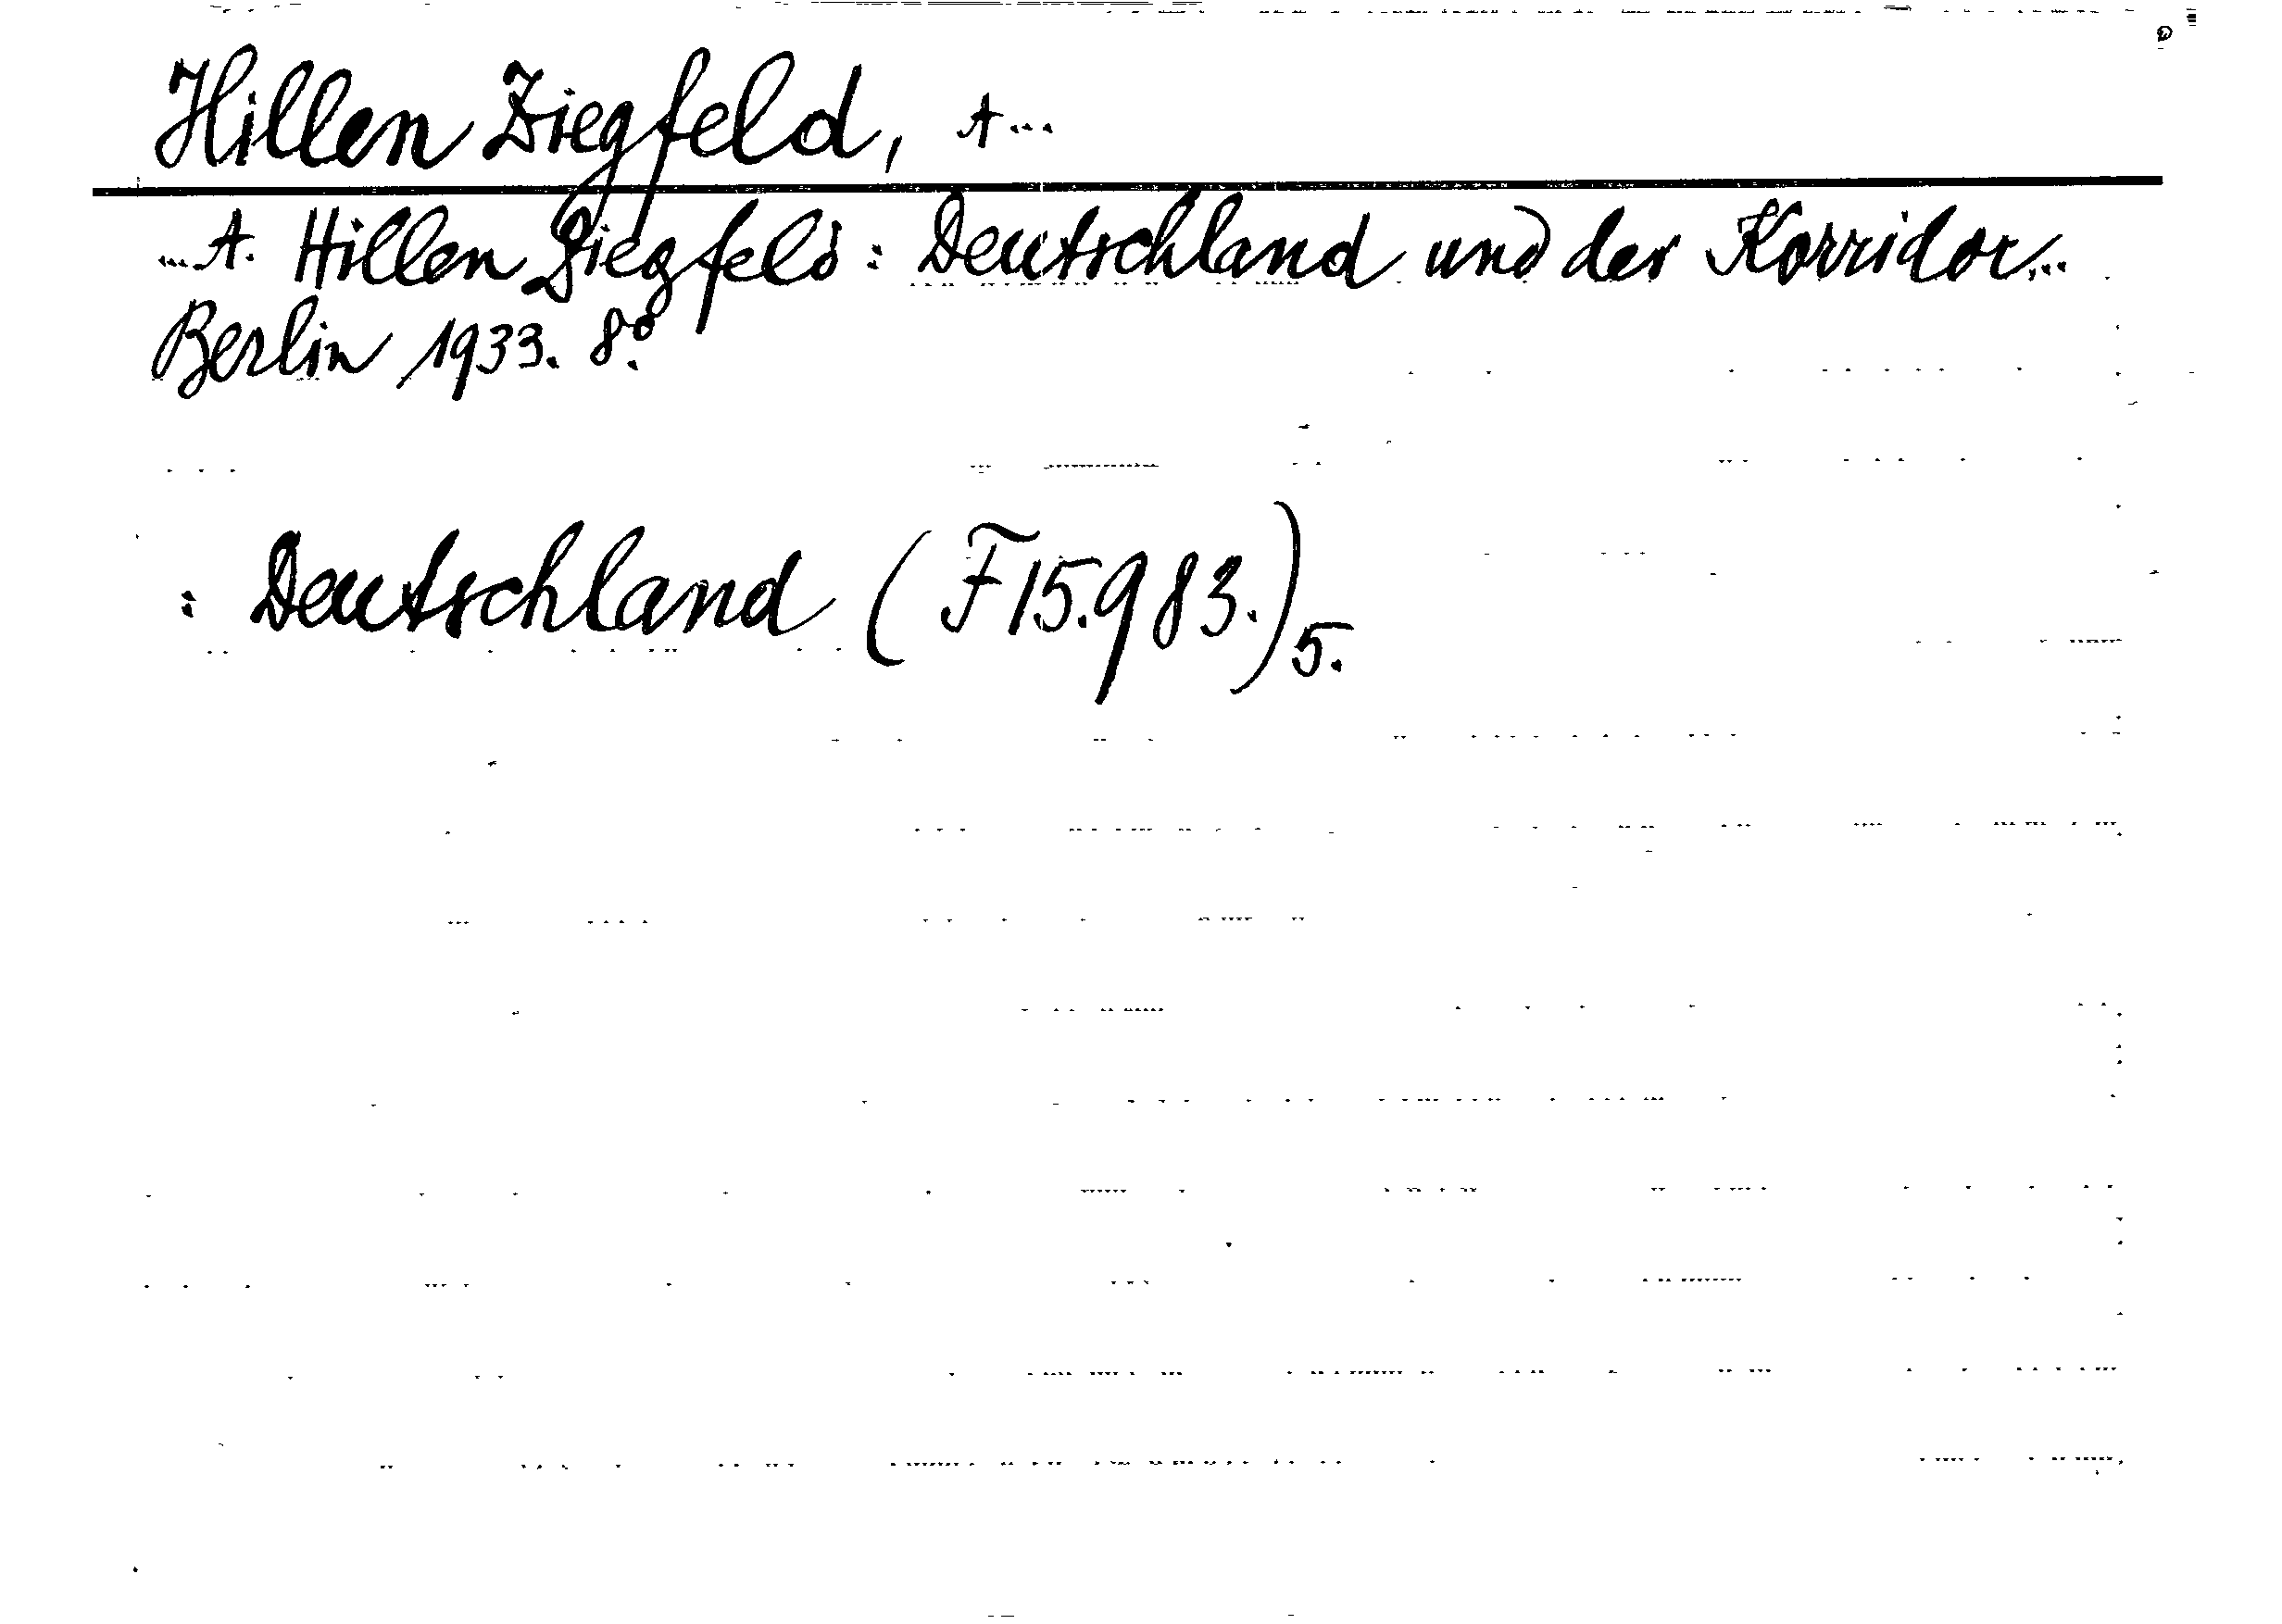 Hillen Ziegfeld, A...
...A. Hillen Ziegfeld: Deutschland und der Korridor...
Berlin 1933. 8.°
: Deutschland (F 15.983.) 5.